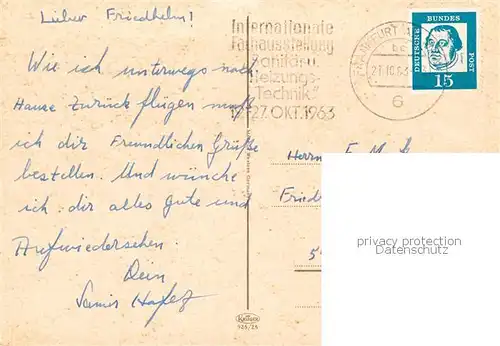 Lieber Friedhelm!
Wie ich unterwegs nach
Hause zurück flügen muß
ich dir Freundlichen Grüße
bestellen. Und wünche
ich dir alles gute und
Aufwiedersehen.
Dein
Internationale
Fachausstellung
Sanitär-u.
Heizungs-
Technik"
27.OKT.1963
FRANKFURT
6
DEUTSCHE BUNDESPOST
15
Herrn
Fried
5
privacy protection
Datenschutz